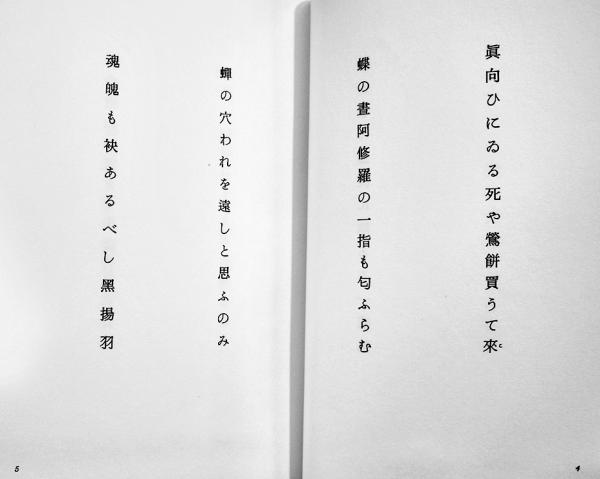 眞向ひにゐる死や鶯餠買うて來
こ
蝶の晝阿修羅の一指も匂ふらむ
4
蟬の穴われを遠しと思ふのみ
魂魄も袂あるべし黑揚羽
5